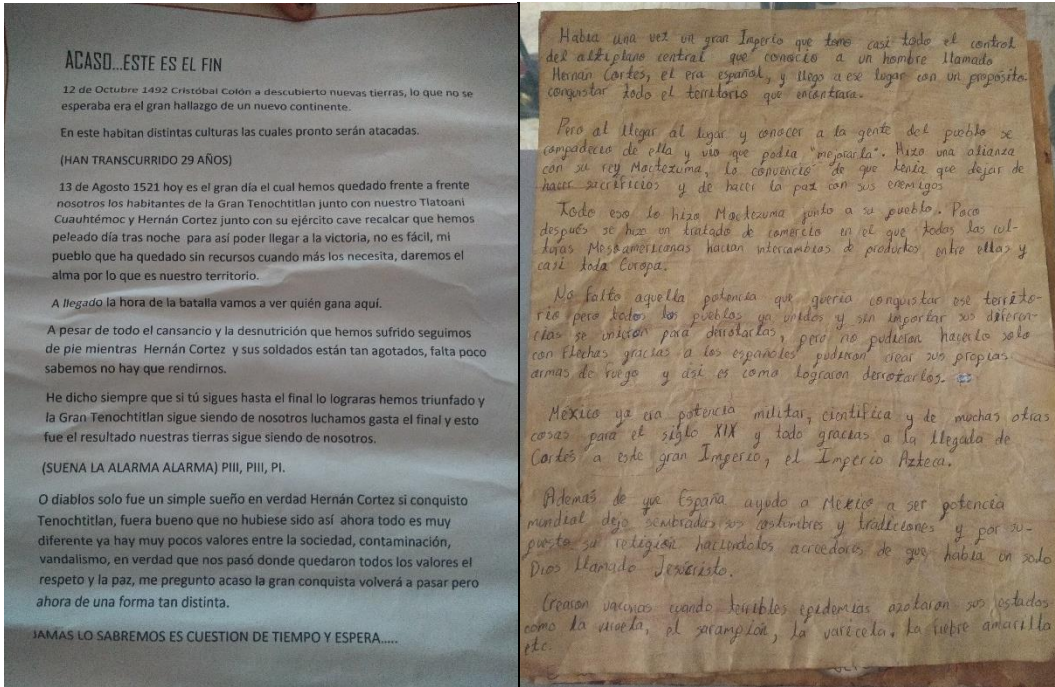 ACASO...ESTE ES EL FIN
12 de Octubre 1492 Cristóbal Colón a descubierto nuevas tierras, lo que no se
esperaba era el gran hallazgo de un nuevo continente.
En este habitan distintas culturas las cuales pronto serán atacadas.
(HAN TRANSCURRIDO 29 AÑOS)
13 de Agosto 1521 hoy es el gran día el cual hemos quedado frente a frente
nosotros los habitantes de la Gran Tenochtitlan junto con nuestro Tlatoani
Cuauhtémoc y Hernán Cortez junto con su ejército cave recalcar que hemos
peleado día tras noche para así poder llegar a la victoria, no es fácil, mi
pueblo que ha quedado sin recursos cuando más los necesita, daremos el
alma por lo que es nuestro territorio.
A llegado la hora de la batalla vamos a ver quién gana aquí.
A pesar de todo el cansancio y la desnutrición que hemos sufrido seguimos
de pie mientras Hernán Cortez y sus soldados están tan agotados, falta poco
sabemos no hay que rendirnos.
He dicho siempre que si tú sigues hasta el final lo lograras hemos triunfado y
la Gran Tenochtitlan sigue siendo de nosotros luchamos gasta el final y esto
fue el resultado nuestras tierras sigue siendo de nosotros.
(SUENA LA ALARMA ALARMA) PIII, PIII, PI.
O diablos solo fue un simple sueño en verdad Hernán Cortez si conquisto
Tenochtitlan, fuera bueno que no hubiese sido así ahora todo es muy
diferente ya hay muy pocos valores entre la sociedad, contaminación,
vandalismo, en verdad que nos pasó donde quedaron todos los valores el
respeto y la paz, me pregunto acaso la gran conquista volverá a pasar pero
ahora de una forma tan distinta.
JAMAS LO SABREMOS ES CUESTION DE TIEMPO Y ESPERA.....
Habia una vez un gran Imperio que tomo casi todo el control
del altiplano central que conocio a un hombre llamado
Hernán Cortes, el era español, y llego a ese lugar con un proposito
conquistar todo el territorio que encontrara.
Pero al llegar al lugar y conocer a la gente del pueblo se
compadecio de ella y vio que podia "mejorarla". Hizo una alianza
con su rey Moctezuma, lo convencio de que tenia que dejar de
hacer sacrificios y de hacer la paz con sus enemigos
Todo eso lo hizo Moctezuma junto a su pueblo. Poco
después se hizo un tratado de comercio en el que todas las cul-
turas Mesoamericanas hacian intercambios de productos entre ellas y
casi toda Europa.
No falto aquella potencia que queria conquistar ese territo-
rio pero todos los pueblos ya unidos y sin importar sus diferen-
cias se unieron para derrotarlas, pero no pudieron hacerlo solo
con flechas gracias a los españoles pudieron crear sus propias
armas de fuego y asi es como lograron derrotarlos.
México ya era potencia militar, cientifica y de muchas otras
cosas para el siglo XIX y todo gracias a la llegada de
Cortés a este gran Imperio, el Imperio Azteca.
Además de que España ayudo a México a ser potencia
mundial dejo sembradas sus costumbres y tradiciones y por su-
puesto su religión haciendolos acreedores de que habia un solo
Dios llamado Jesucristo.
Crearon vacunas cuando terribles epidemias azotaron sus estados
como la viruela, el sarampión, la varicela. la fiebre amarilla
etc.